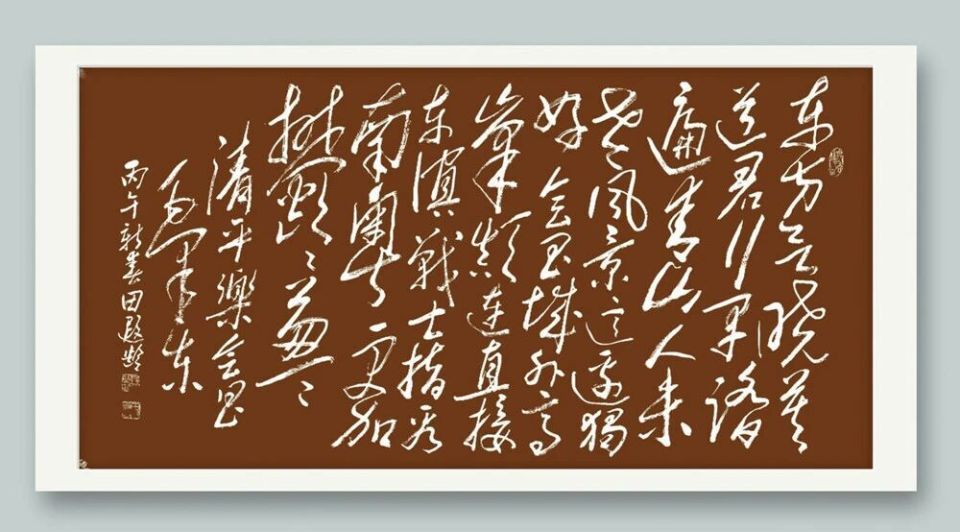 东方欲晓莫
道君行早踏
遍青山人未
老风景这边独
好会昌城外高
峰颠连直接
东溟战士指看
南粤更加
郁〻葱〻
清平樂会昌
毛泽东
丙午新春田遐龄